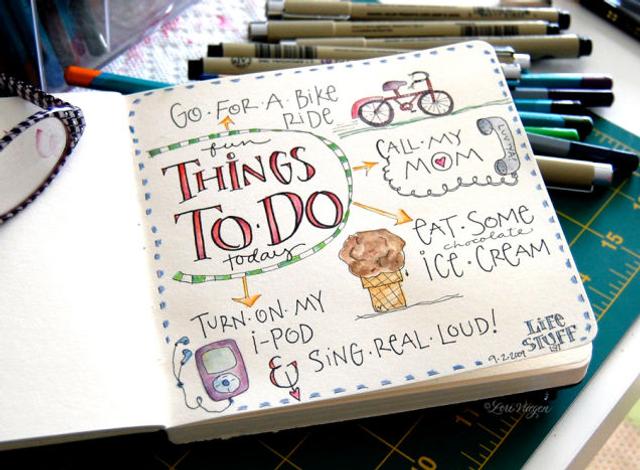 GO·FOR·A·BiKE
RiDE
fun
THiNGS
TO·DO
today
CALL·MY
MOM
EAT·SOME
chocolate
iCE·CREAM
TURN·ON·MY
i-POD
& SiNG·REAL·LOUD!
LiFE
STUFF
9·2·2009
15